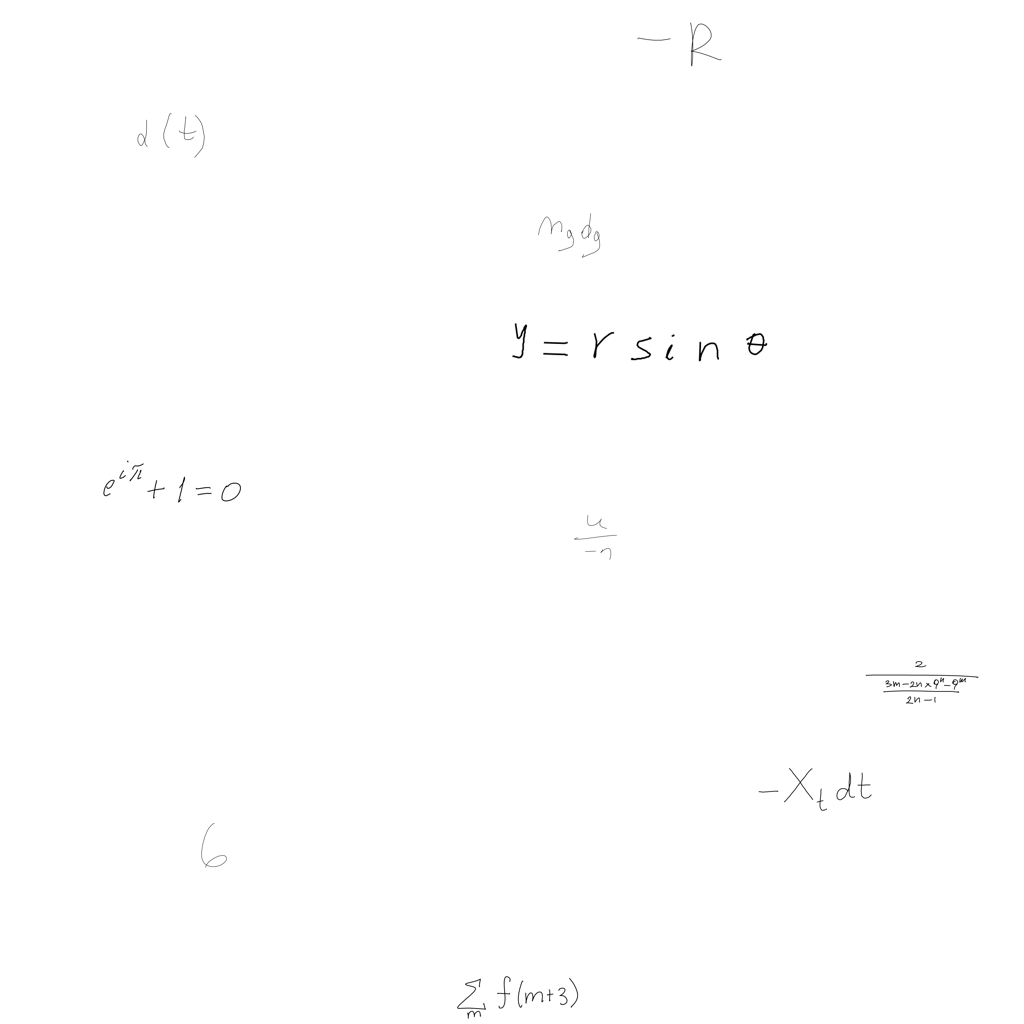 -R
d(t)
n_g d_g
y = r sin θ
e^{iπ} + 1 = 0
\frac{u}{-n}
\frac{2}{\frac{3m-2n×9^n-9^m}{2n-1}}
-X_t dt
6
\sum_m f(m+3)